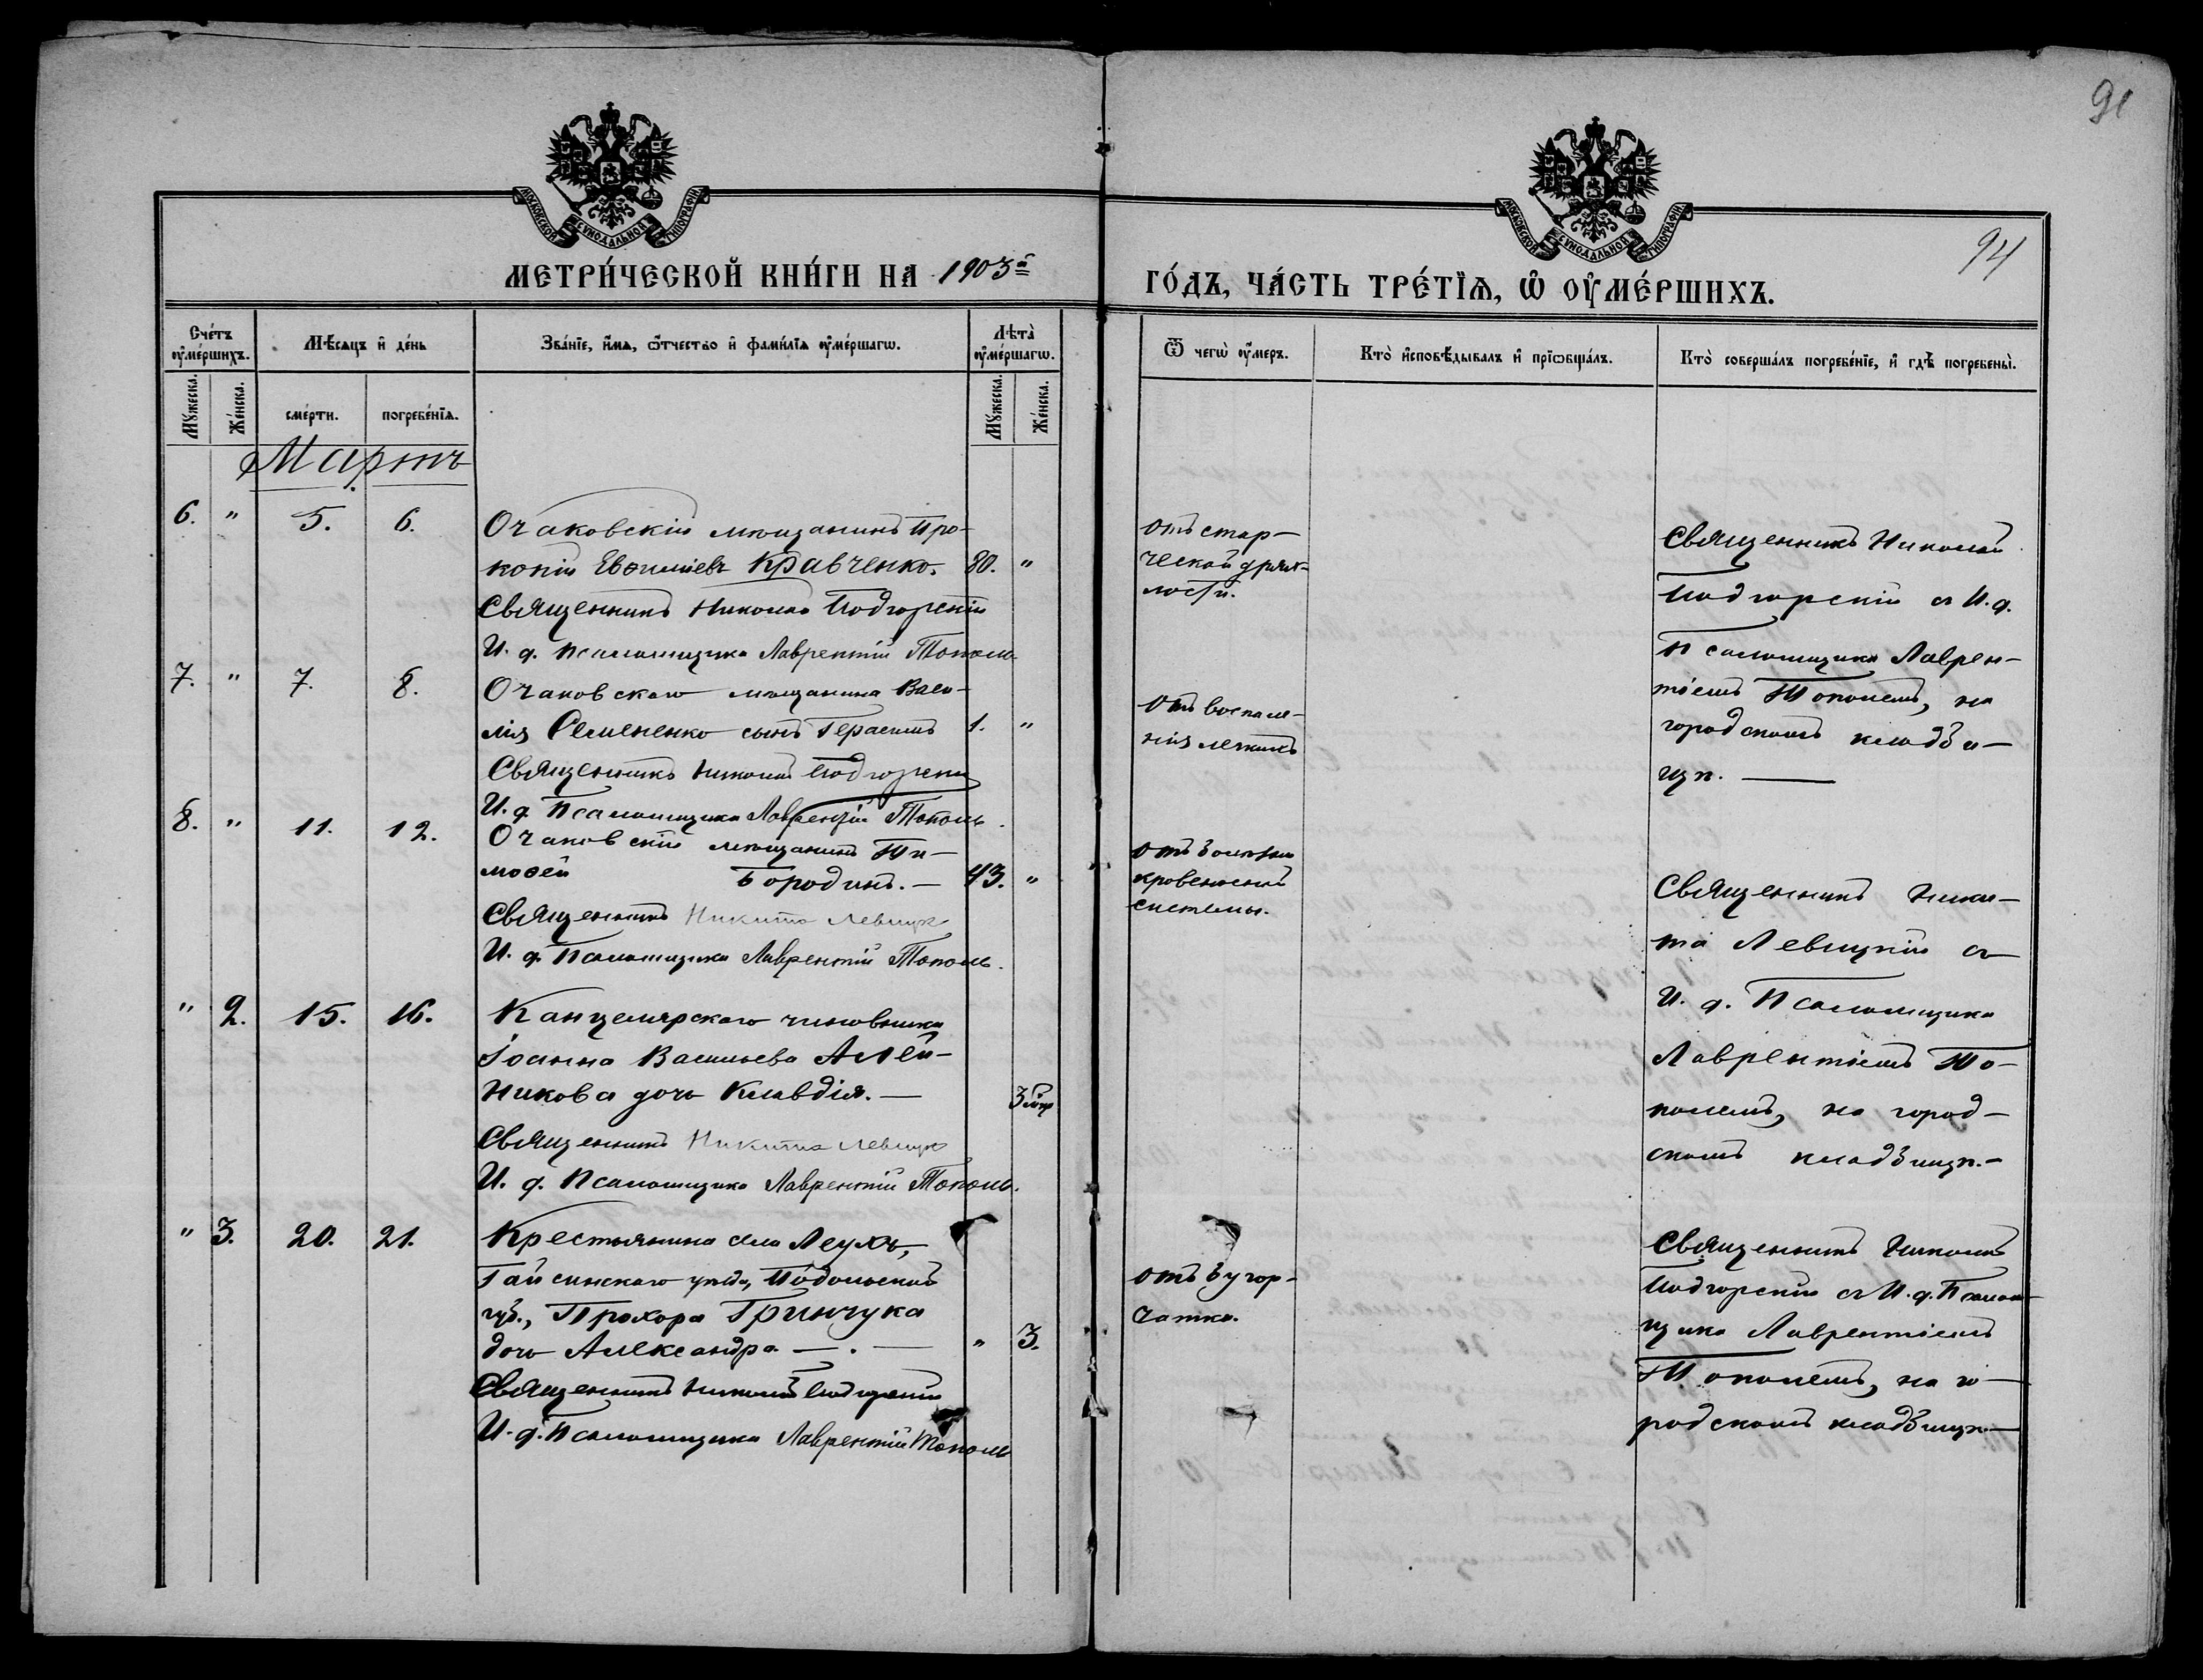 91
94
МОСКОВСКОЙ СУНОДАЛЬНОЙ ТИПОГРАФІИ
МОСКОВСКОЙ СУНОДАЛЬНОЙ ТИПОГРАФІИ
МЕТРИ́ЧЕСКОЙ КНИ́ГИ НА 1903й
ГО́ДЪ, ЧА́СТЬ ТРЕ́ТЇѦ, Ѡ҆ ОУ҆МЕ́РШИХЪ.
Сче́тъ оу҆ме́ршихъ.
Мѣ́сѧцъ и҆ де́нь
Зва́нїе, и҆́мѧ, ѻ҆́тчество и҆ фами́лїѧ оу҆ме́ршагѡ.
Лѣта̀ оу҆ме́ршагѡ.
Ѿ чегѡ̀ оу҆́меръ.
Кто̀ и҆сповѣ́дывалъ и҆ прїѡбща́лъ.
Кто̀ соверша́лъ погребе́нїе, и҆ гдѣ̀ погребены̀.
Мꙋ́жеска.
Же́нска.
сме́рти.
погребе́нїѧ.
Мꙋ́жеска.
Же́нска.
Мартъ
6. " 5. 6. Очаковскій мѣщанинъ Про-
копій Евѳиміевъ Кравченко. 80. "
Священникъ Николай Подгорскій
И. д. псаломщика Лаврентій Тополь
отъ стар-
ческой дрях-
лости.
Священникъ Николай
Подгорскій съ И. д.
Псаломщика Лаврен-
тіемъ Тополемъ, на
городскомъ кладби-
щѣ. —
7. " 7. 8. Очаковскаго мѣщанина Васи-
лія Семененко сынъ Герасимъ 1. "
Священникъ Николай Подгорскій
И. д. Псаломщика Лаврентій Тополь
отъ воспале-
нія легкихъ
8. " 11. 12. Очаковскій мѣщанинъ Ти-
моѳей Бородинъ. — 43. "
Священникъ Никита
И. д. Псаломщика Лаврентій Тополь.
отъ болѣзни
кровеносной
системы.
Священникъ Ники-
та Левицкій съ
И. д. Псаломщика
Лаврентіемъ То-
полемъ, на город-
скомъ кладбищѣ. —
" 2. 15. 16. Канцелярскаго чиновника
Іоанна Васильева Алей-
никова дочь Клавдія. —
Священникъ Никита
И. д. Псаломщика Лаврентій Тополь.
" 3. 20. 21. Крестьянина села Леухъ,
Гайсинскаго уѣзда, Подольской
губ., Прохора Гринчука
дочь Александра — . — " 3.
Священникъ Николай Подгорскій
И. д. Псаломщика Лаврентій Тополь
отъ бугор-
чатки.
Священникъ Николай
Подгорскій съ И. д. Псалом-
щика Лаврентіемъ
Тополемъ, на го-
родскомъ кладбищѣ. —